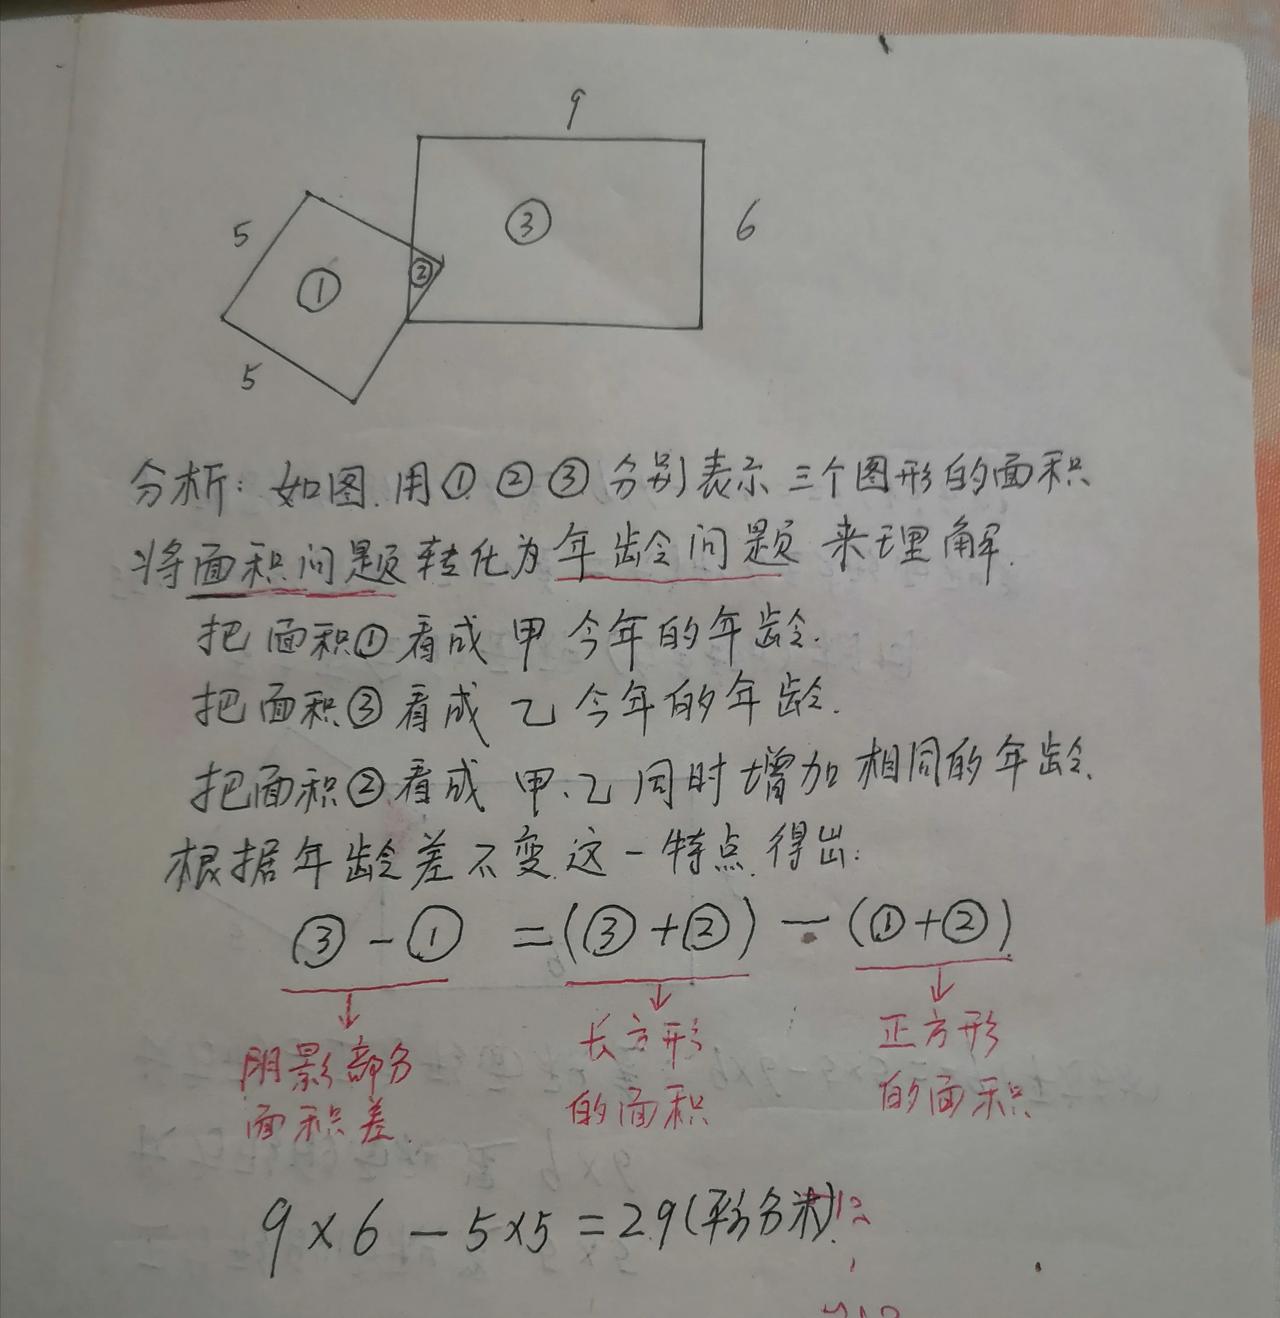 9
③
6
5
①
②
5
分析：如图.用① ② ③分别表示三个图形的面积
将面积问题转化为年龄问题 来理解.
把面积①看成 甲 今年的年龄.
把面积③看成 乙 今年的年龄.
把面积②看成 甲、乙同时增加相同的年龄.
根据年龄差不变这一特点.得出:
③-① =(③+②)-(①+②)
阴影部分 长方形 正方形
面积差. 的面积 的面积
9×6-5×5=29(平方分米)